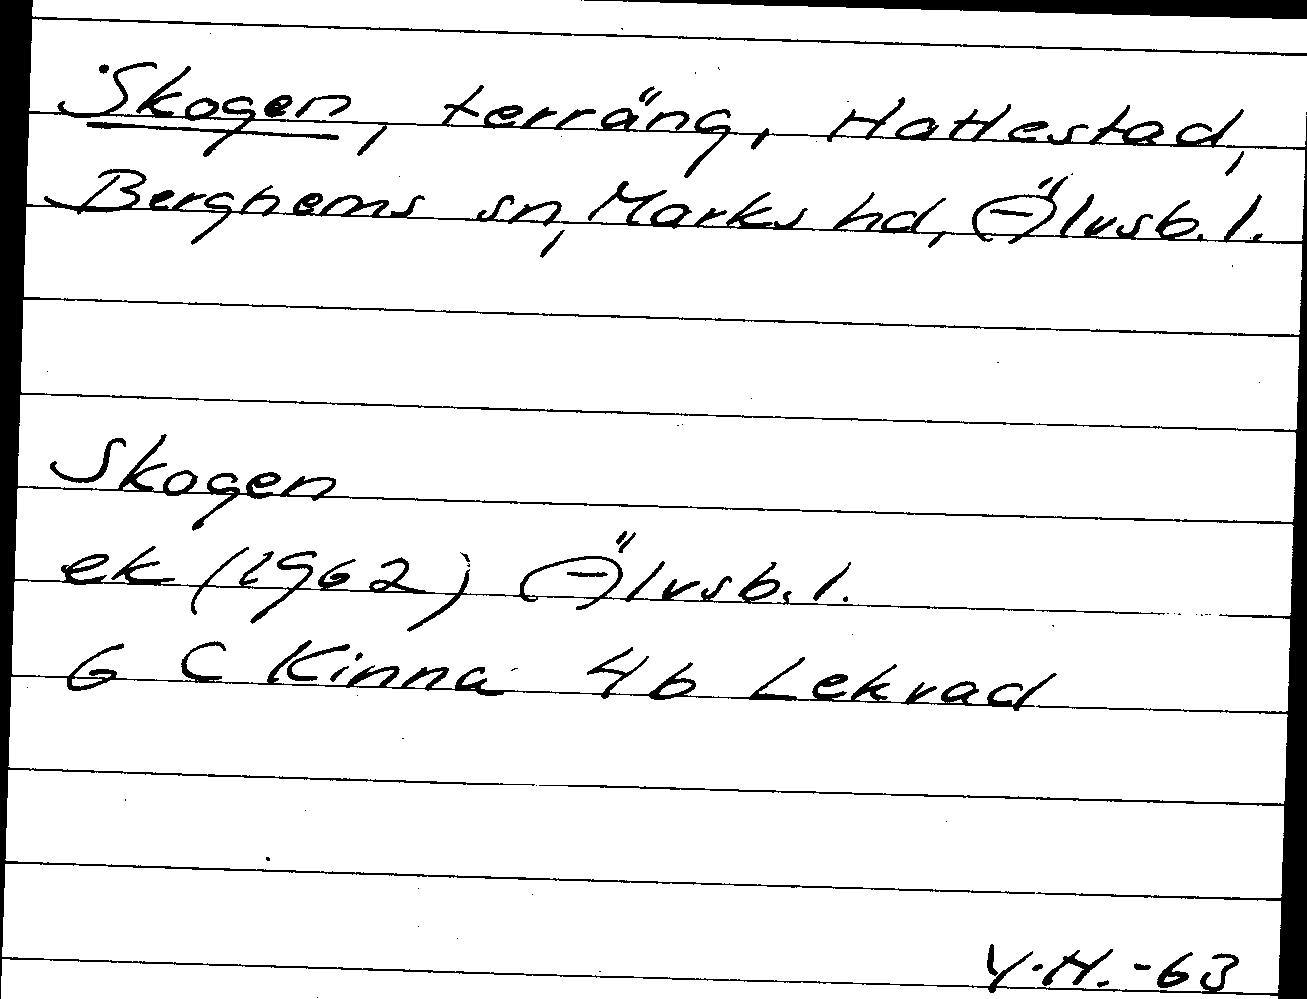 Skogen, terräng, Hattestad,
Berghems sn, Marks hd, Älvsb. l.
Skogen
ek (1962) Älvsb. l.
6 C Kinna 4b Lekvad
Y.H. -63